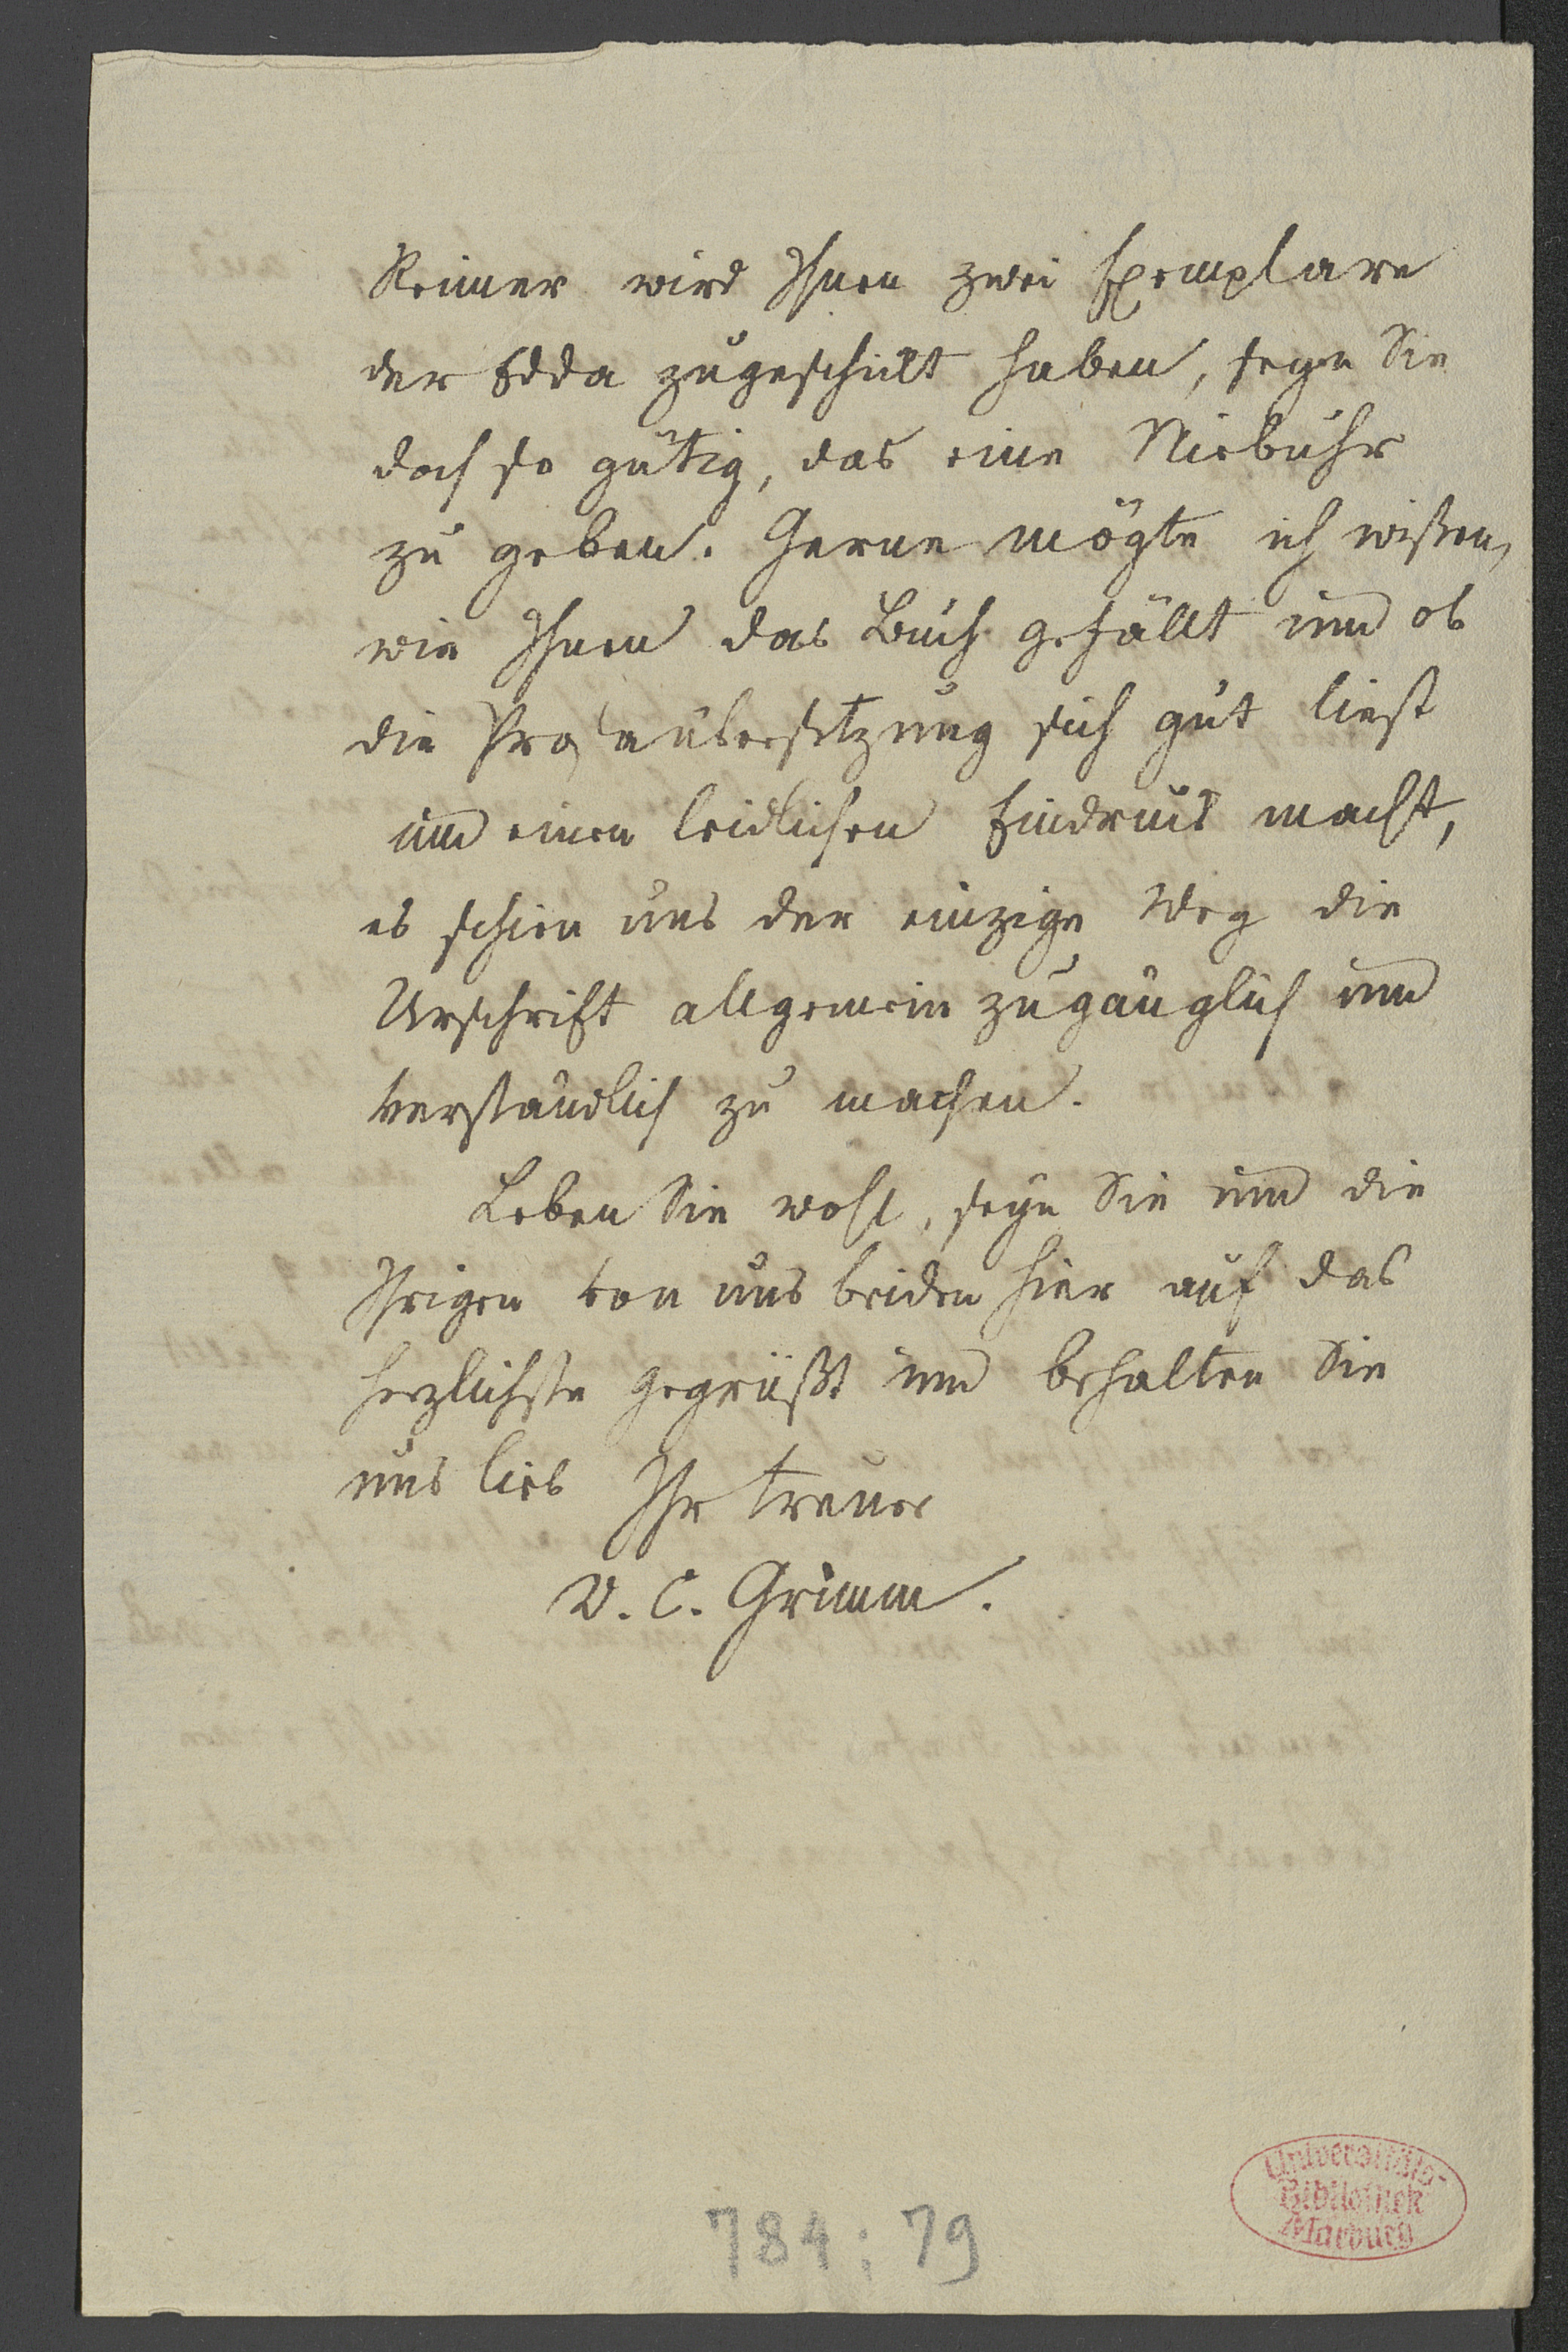 Reimer wird Ihnen zwei Exemplare
der Edda zugeschickt haben, seyn Sie
doch so gütig, das eine Niebuhr
zu geben. Gerne mögte ich wißen,
wie Ihnen das Buch gefällt und ob
die Prosaübersetzung sich gut liest
und einen leidlichen Eindruck macht,
es schien uns der einzige Weg die
Urschrift allgemein zugänglich und
verständlich zu machen.
Leben Sie wohl, seyn Sie und die
Ihrigen von uns beiden hier auf das
herzlichste gegrüßt und behalten Sie
uns lieb Ihr treuer
W. C. Grimm.
784 : 79
Universitäts-
Bibliothek
Marburg